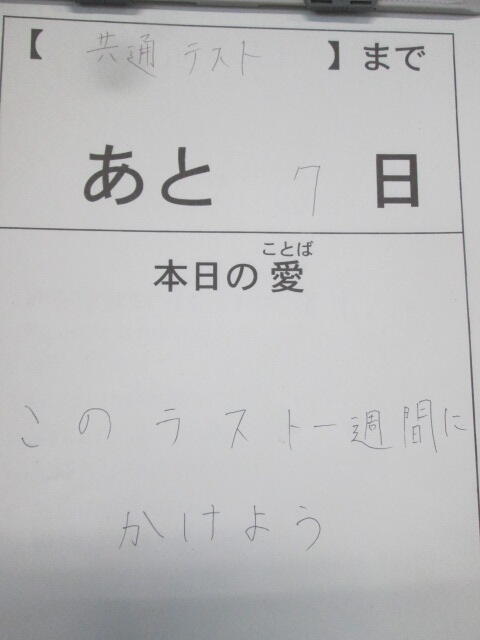 【 共通 テスト 】まで
あと 7 日
ことば
本日の 愛
このラスト一週間に
かけよう